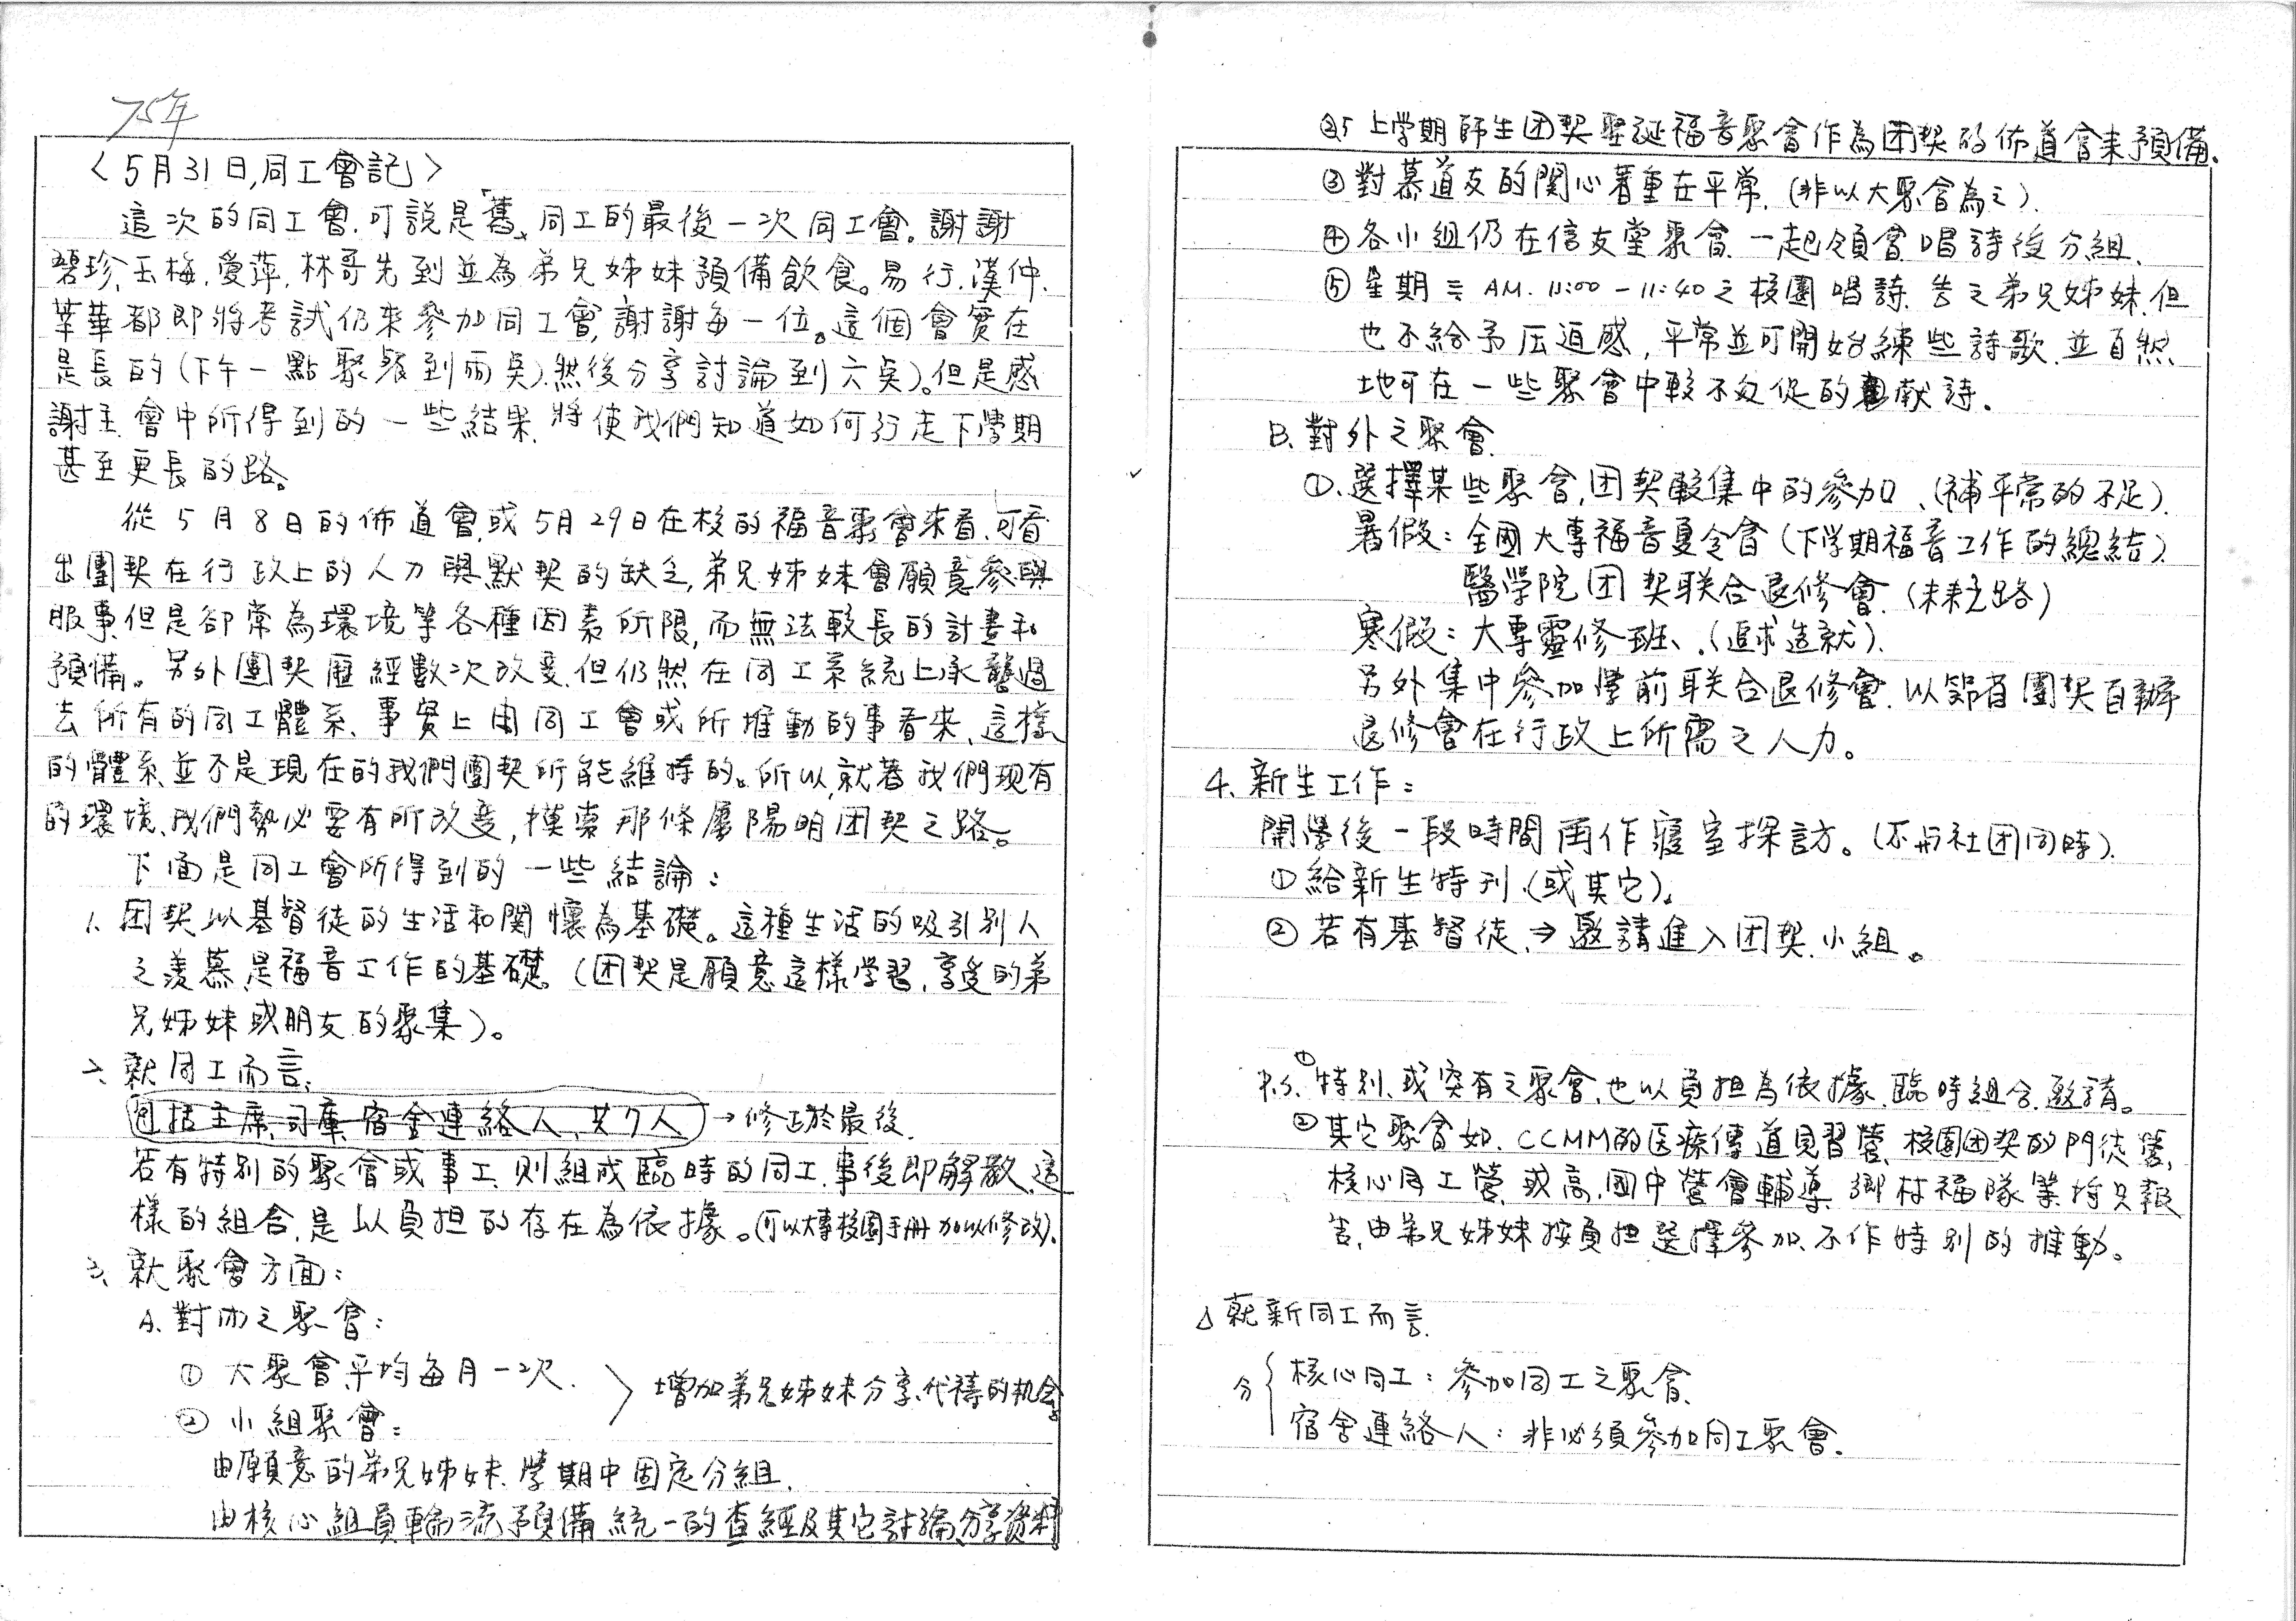 75年
〈5月31日,同工會記〉
這次的同工會,可說是「舊」同工的最後一次同工會。謝謝
碧珍、玉梅、愛萍、林哥先到並為弟兄姊妹預備飲食。易行、漢仲、
莘華都即將考試仍來參加同工會,謝謝每一位。這個會實在
是長的(下午一點聚餐到兩奌),然後分享討論到六奌)。但是感
謝主,會中所得到的一些結果,將使我們知道如何行走下學期
甚至更長的路。
從5月8日的佈道會,或5月29日在校的福音聚會來看,可看
出團契在行政上的人力與默契的缺乏,弟兄姊妹會願意參與
服事,但是卻常為環境等各種因素所限,而無法較長的計畫和
預備。另外團契雖經數次改变,但仍然在同工系統上承襲過
去所有的同工體系、事實上由同工會或所推動的事看來,這樣
的體系並不是現在的我們團契所能維持的。所以,就着我們現有
的環境,我們勢必要有所改变,摸索那條屬陽明团契之路。
下面是同工會所得到的一些結論:
1、团契以基督徒的生活和関懷為基礎。這種生活的吸引別人
之羨慕,是福音工作的基礎。(团契是願意這樣学習,享受的弟
兄姊妹或朋友的聚集)。
2、就同工而言:
包括主席、司庫、宿舍連絡人、共7人 → 修正於最後.
若有特別的聚會或事工,則組成臨時的同工,事後即解散,這
樣的組合,是以負担的存在為依據。(可以大專校園手冊加以修改)。
3、就聚會方面:
A、對內之聚會:
① 大聚會,平均每月一次.
② 小組聚會:
〉增加弟兄姊妹分享、代禱的机会。
由願意的弟兄姊妹,學期中固定分組.
由核心組員輪流預備統一的查經及其它討論、分享資料。
上学期師生团契聖誕福音聚會作為团契的佈道會來預備.
③對慕道友的関心著重在平常.(非以大聚會為之).
④各小組仍在信友堂聚會,一起領會唱詩後分組.
⑤星期三 AM. 11:00-11:40之校園唱詩,告之弟兄姊妹,但
也不給予压迫感,平常並可開始練些詩歌,並自然
地可在一些聚會中較不匆促的献詩.
B、對外之聚會.
①、選擇某些聚會,团契較集中的參加、(補平常的不足).
暑假:全國大專福音夏令會(下学期福音工作的總結).
醫学院团契联合退修會.(未來之路)
寒假:大專靈修班、(追求造就).
另外集中參加學前联合退修會,以節省團契自辦
退修會在行政上所需之人力。
4、新生工作:
開學後一段時間再作寢室探訪。(不与社团同時).
①給新生特刊.(或其它)。
②若有基督徒→邀請進入团契、小組。
P.S.①特別、或突有之聚會,也以負担為依據,臨時組合,邀請。
②其它聚會如、CCMM的医療傳道見習營、校園团契的門徒營,
核心同工營,或高、國中營會輔導,鄉村福隊等將只報
告,由弟兄姊妹按負担選擇參加,不作特別的推動。
△就新同工而言.
分{核心同工:參加同工之聚會.
宿舍連絡人:非必須參加同工聚會.